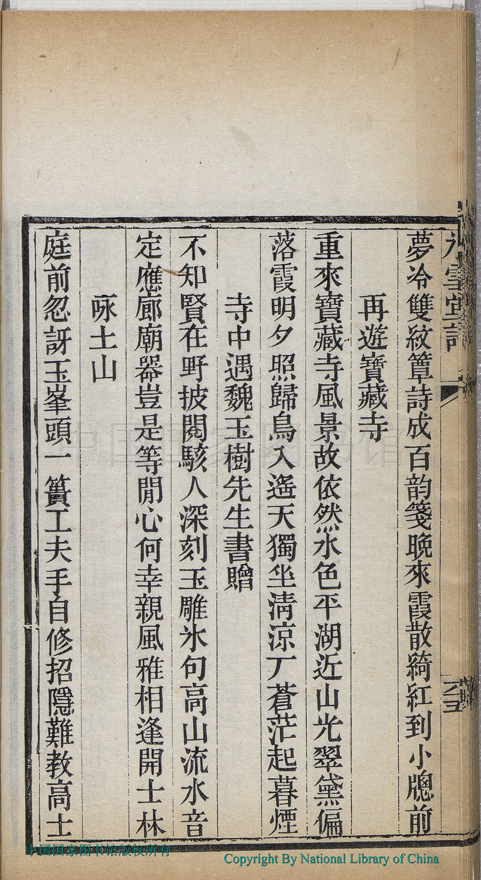 夢冷雙紋簟詩成百韵箋晚來霞散綺紅到小牕前
再遊寶藏寺
重來寶藏寺風景故依然水色平湖近山光翠黛偏
落霞明夕照歸鳥入遙天獨坐淸涼厂蒼茫起暮煙
寺中遇魏玉樹先生書贈
不知賢在野披閱駭人深刻玉雕氷句高山流水音
定應廊廟器豈是等閒心何幸親風雅相逢開士林
咏土山
庭前忽訝玉峯頭一簣工夫手自修招隱難教高士
中国国家图书馆版权所有
Copyright By National Library of China